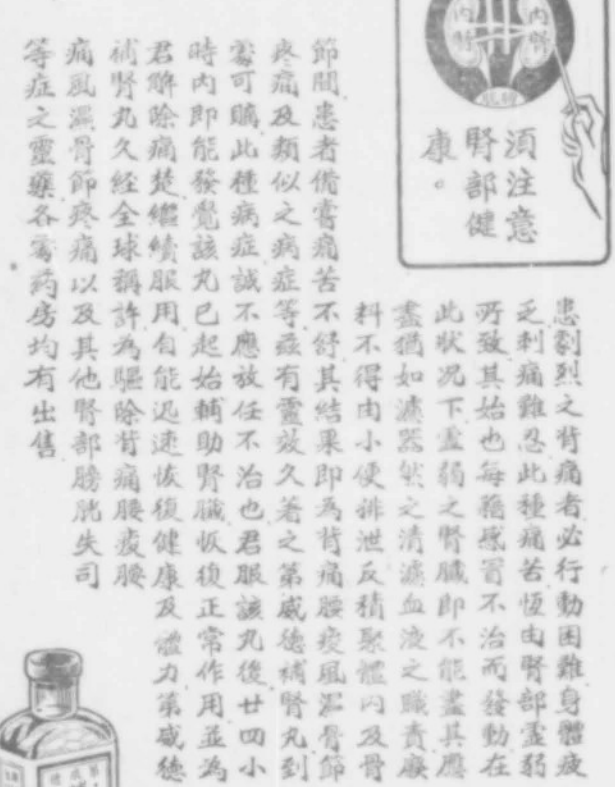 內腎 內腎
膀胱
須注意
腎部健
康。
患劇烈之背痛者必行動困難身體疲
乏刺痛難忍此種痛苦恆由腎部虛弱
所致其始也每膽感冒不治而發動在
此狀況下虛弱之腎臟即不能盡其應
盡猶如濾器然之清濾血液之職責廢
料不得由小便排泄反積聚體內及骨
節間患者備嘗痛苦不舒其結果即為背痛腰痠風濕骨節
疼痛及類似之病症等茲有靈效久著之第威德補腎丸到
處可購此種病症誠不應放任不治也君服該丸後廿四小
時內即能發覺該丸已起始輔助腎臟恢復正常作用並為
君解除痛楚繼續服用自能迅速恢復健康及體力第威德
補腎丸久經全球稱許為驅除背痛腰痠腰
痛風濕骨節疼痛以及其他腎部膀胱失司
等症之靈藥各處药房均有出售
第威德